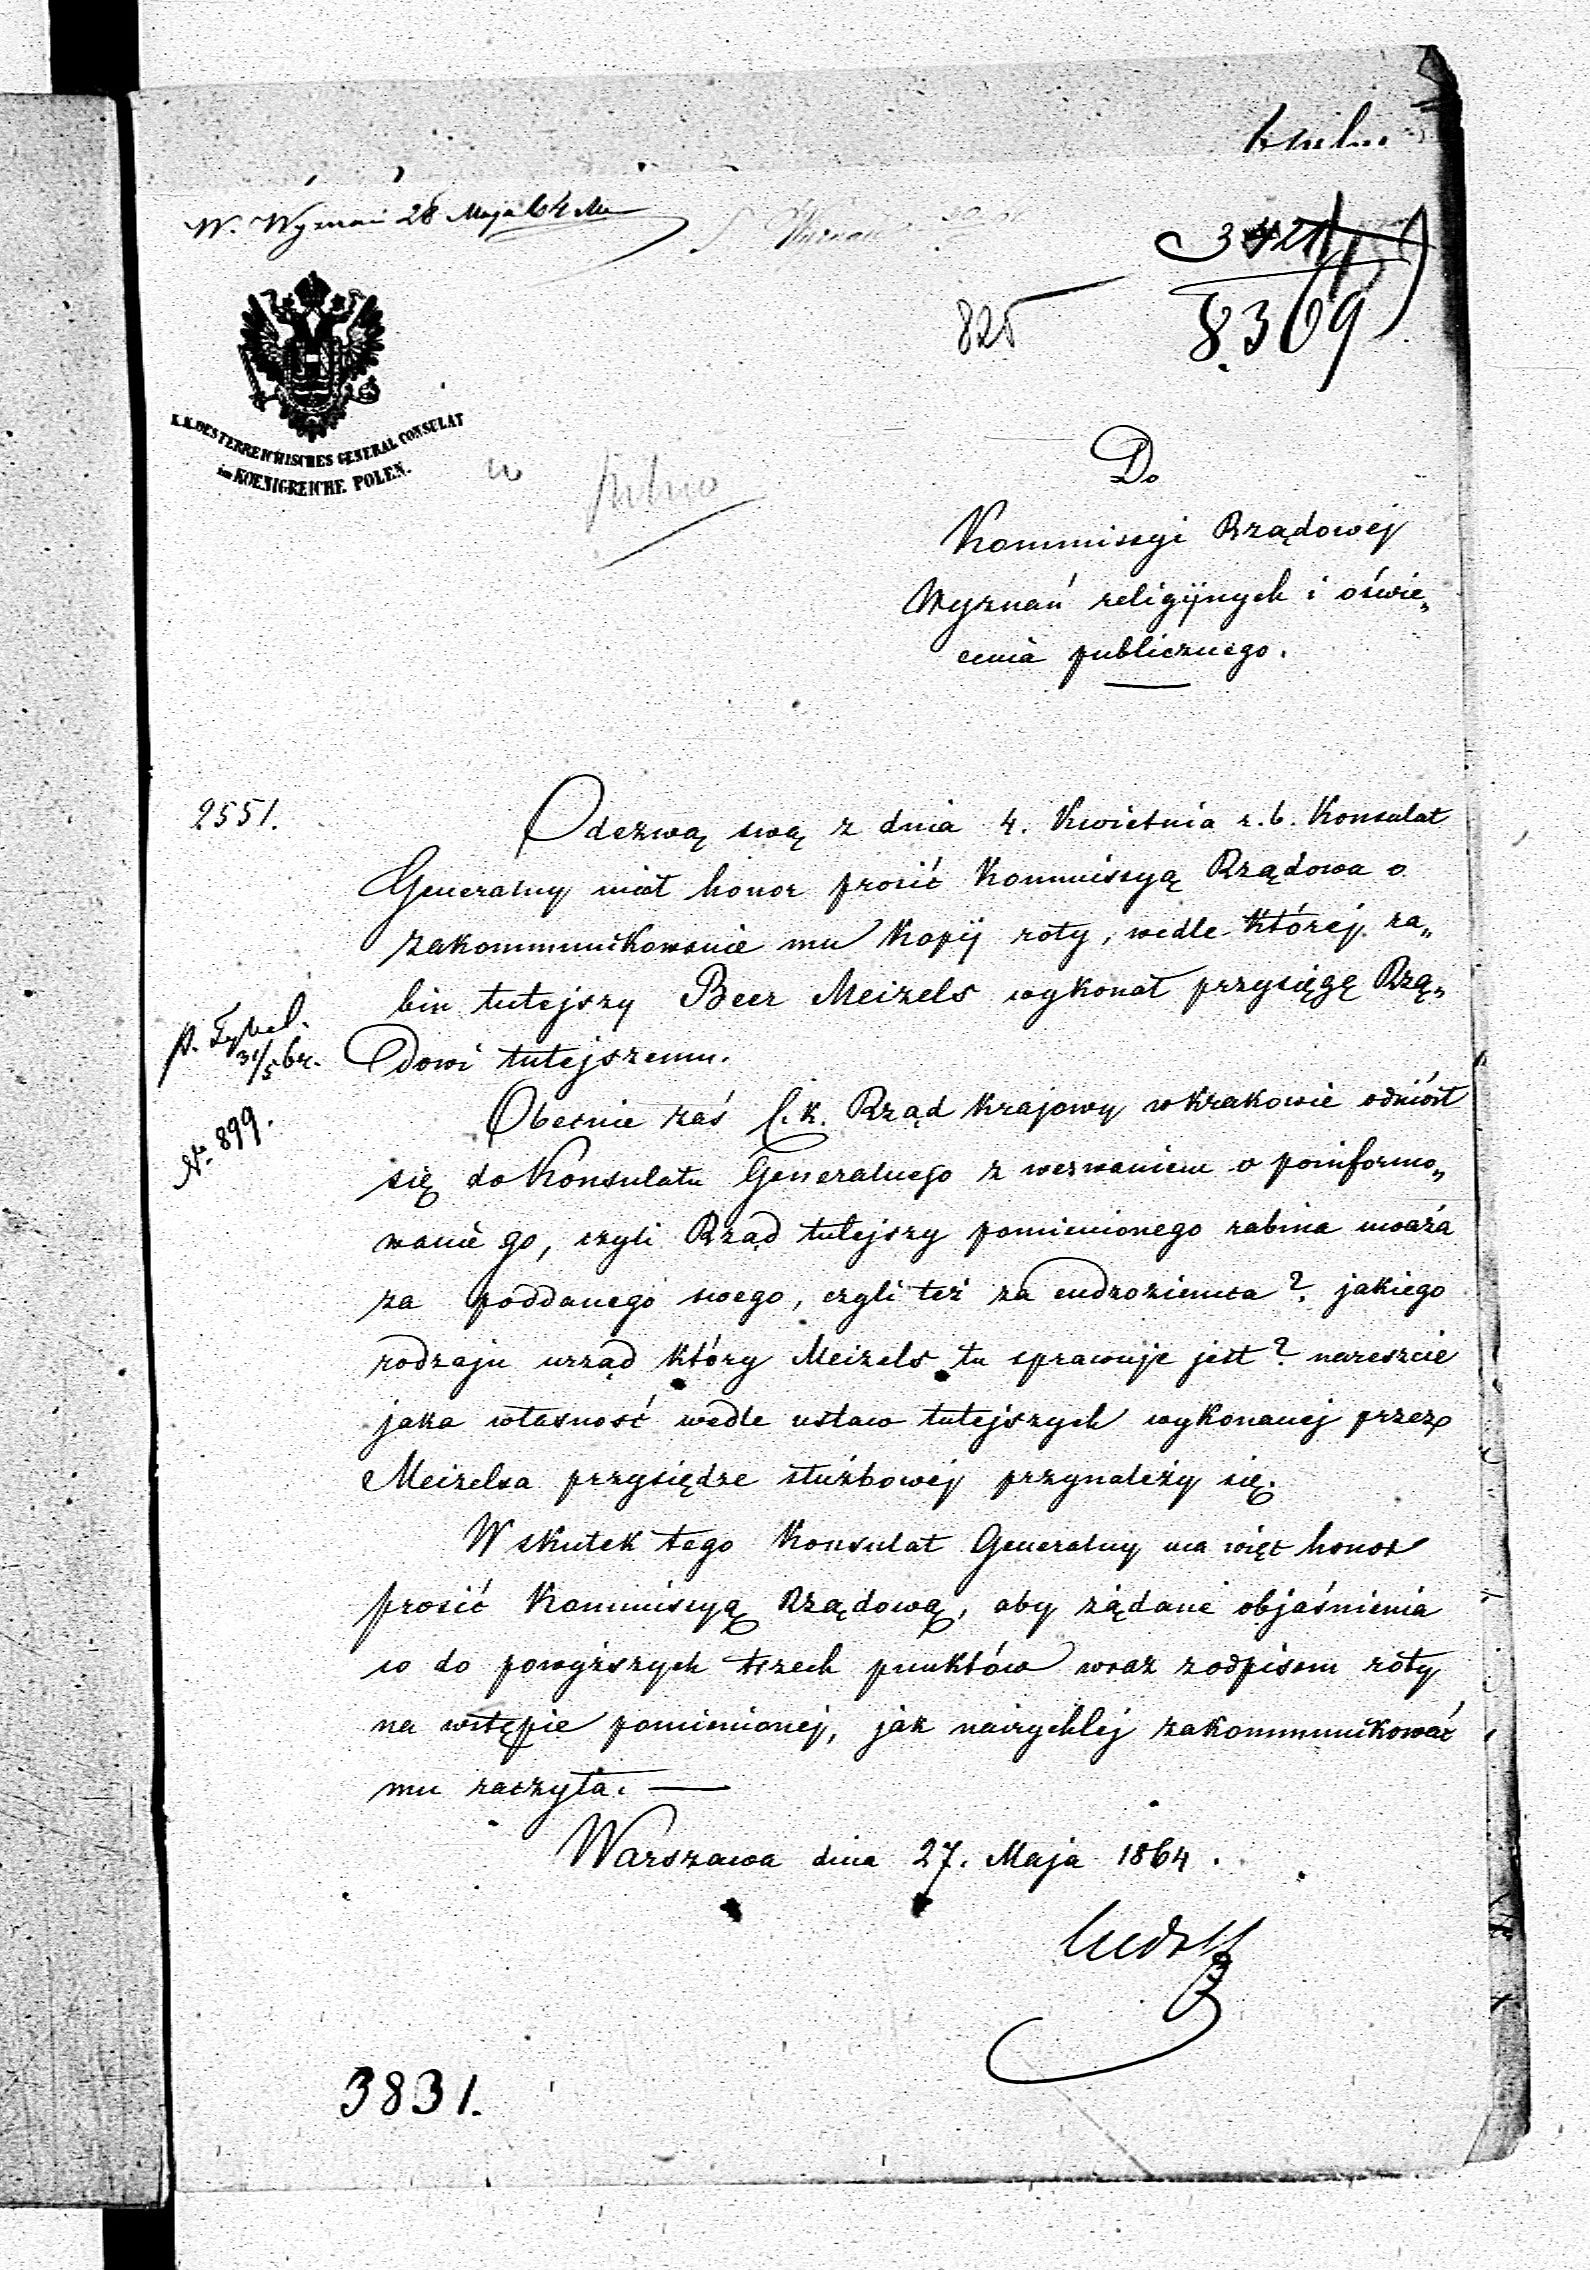 W. Wyznań 28 Maja 64
825
8369
K.K. OESTERREICHISCHES GENERAL CONSULAT
im KOENIGREICHE POLEN.
Do
Kommissyi Rządowéj
Wyznań religijnych i oświe„
cenia publicznego.
2551.
Odezwą swą z dnia 4. Kwietnia r. b. Konsulat
Generalny miał honor prosić Kommissyą Rządowa o
zakommunikowanie mu Kopij roty, wedle któréj ra„
bin tutejszy Beer Meizels wykonał przysięgę Rzą„
dowi tutejszemu.
31/5 64.
No. 899.
Obecnie zaś C. k. Rząd Krajowy w Krakowie odniósł
się do Konsulatu Generalnego z wezwaniem o poinformo„
wanie go, czyli Rząd tutejszy pomienionego rabina uważa
za poddanego swego, czyli też za cudzoziemca? jakiego
rodzaju urząd który Meizels tu sprawuje jest? nareszcie
jaka własność wedle ustaw tutejszych wykonanéj przez
Meizelsa przysiędze służbowéj przynależy się.
W skutek tego Konsulat Generalny ma więc honor
prosić Kommissyą Rządową, aby żądane objaśnienia
co do powyższych trzech punktów wraz z odpisem roty
na wstępie pomienionej, jak najrychlej zakommunikować
mu raczyła. —
Warszawa dnia 27. Maja 1864.
Ludolf
3831.